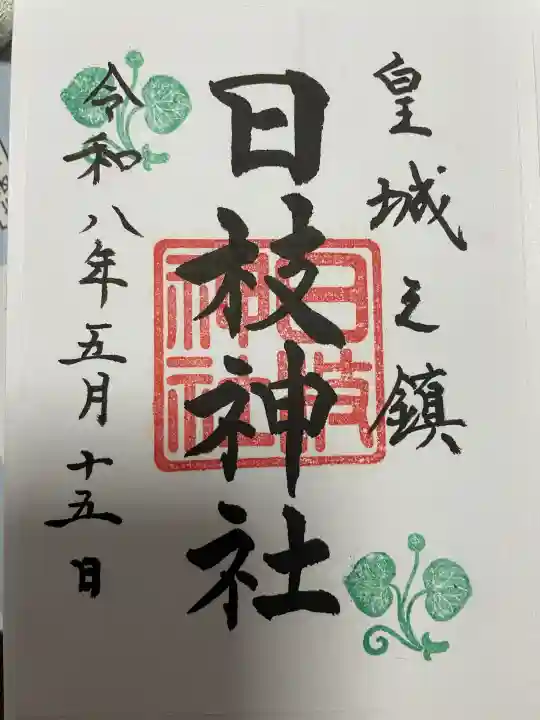 皇城之鎮
日枝神社
日枝神社
令和八年五月十五日